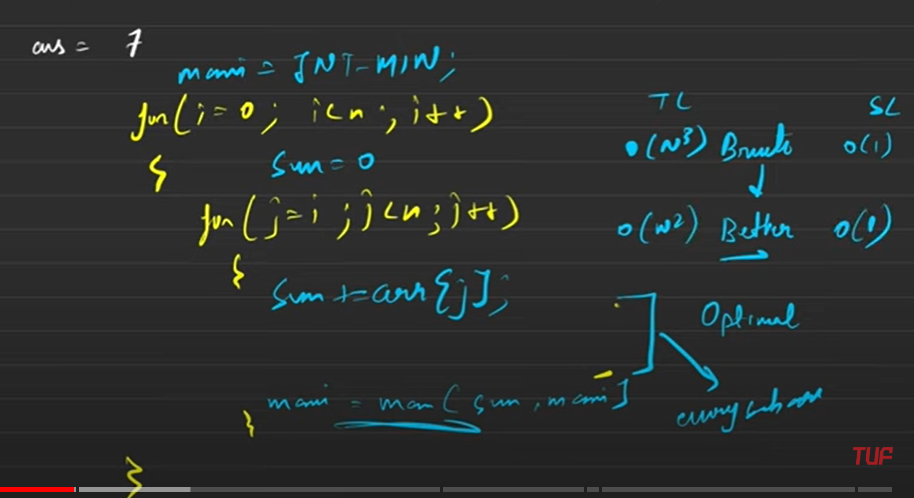 ans = 7
maxi = INT-MIN;
for(i=0; i<n; i++)
{
sum=0
for(j=i; j<n; j++)
{
sum+=arr[j];
maxi = max(sum, maxi]
}
}
TC SC
O(N3) Brute O(1)
O(N2) Better O(1)
Optimal
TUF